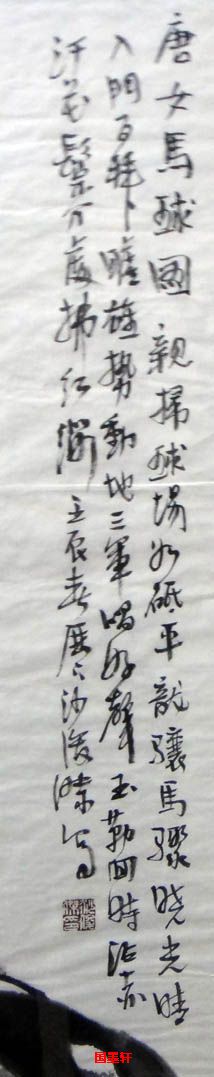 唐女馬球圖 親掃球場如砥平龍驤馬驟晓光晴
入門百拜瞻雄勢動地三軍唱好聲玉勒回時沾赤
汗花鬃分處拂紅纓 壬辰春歷下沙
国墨轩